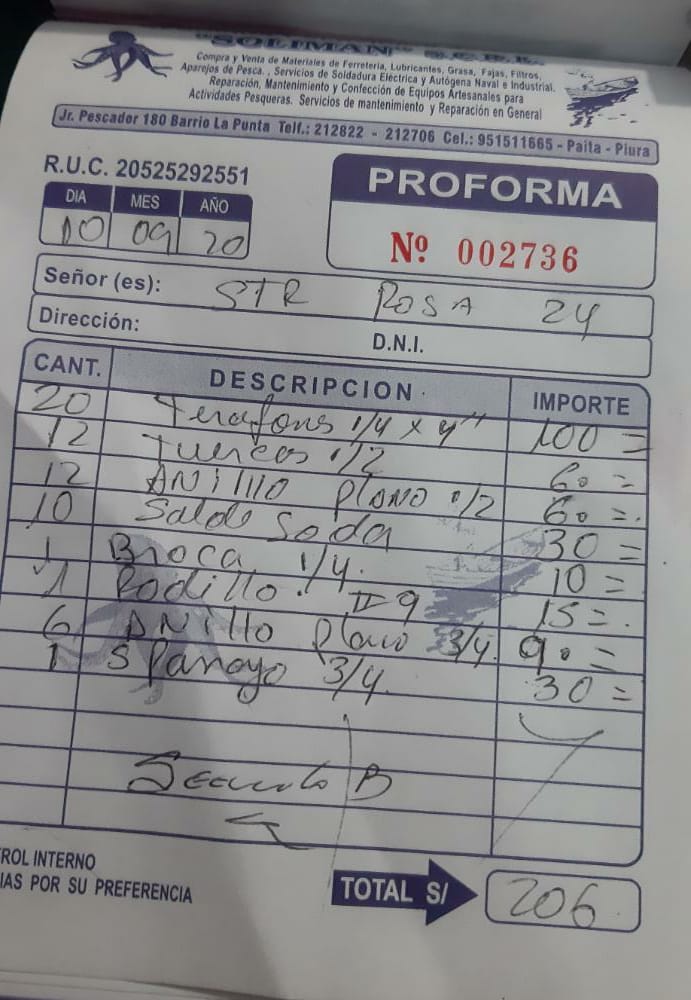 "SOLIMAN" S.C.R.L.
Compra y Venta de Materiales de Ferretería, Lubricantes, Grasa, Fajas, Filtros,
Aparejos de Pesca., Servicios de Soldadura Eléctrica y Autógena Naval e Industrial.
Reparación, Mantenimiento y Confección de Equipos Artesanales para
Actividades Pesqueras. Servicios de mantenimiento y Reparación en General
Jr. Pescador 180 Barrio La Punta Telf.: 212822 - 212706 Cel.: 951511665 - Paita - Piura
R.U.C. 20525292551
PROFORMA
DIA MES AÑO
10 09 20
Nº 002736
Señor (es): STR ROSA 24
Dirección: D.N.I.
CANT. DESCRIPCION IMPORTE
20 1/4 x 4" 100 =
12 Tuercas 1/2 60 =
12 ANillo plano 1/2 60 =
10 Solde Soda 30 =
1 Broca 1/4. 10 =
1 Rodillo. 9 15 =.
6 ANillo plano 3/4. 90 =
1 3/4. 30 =
B
ROL INTERNO
IAS POR SU PREFERENCIA
TOTAL S/ 206.